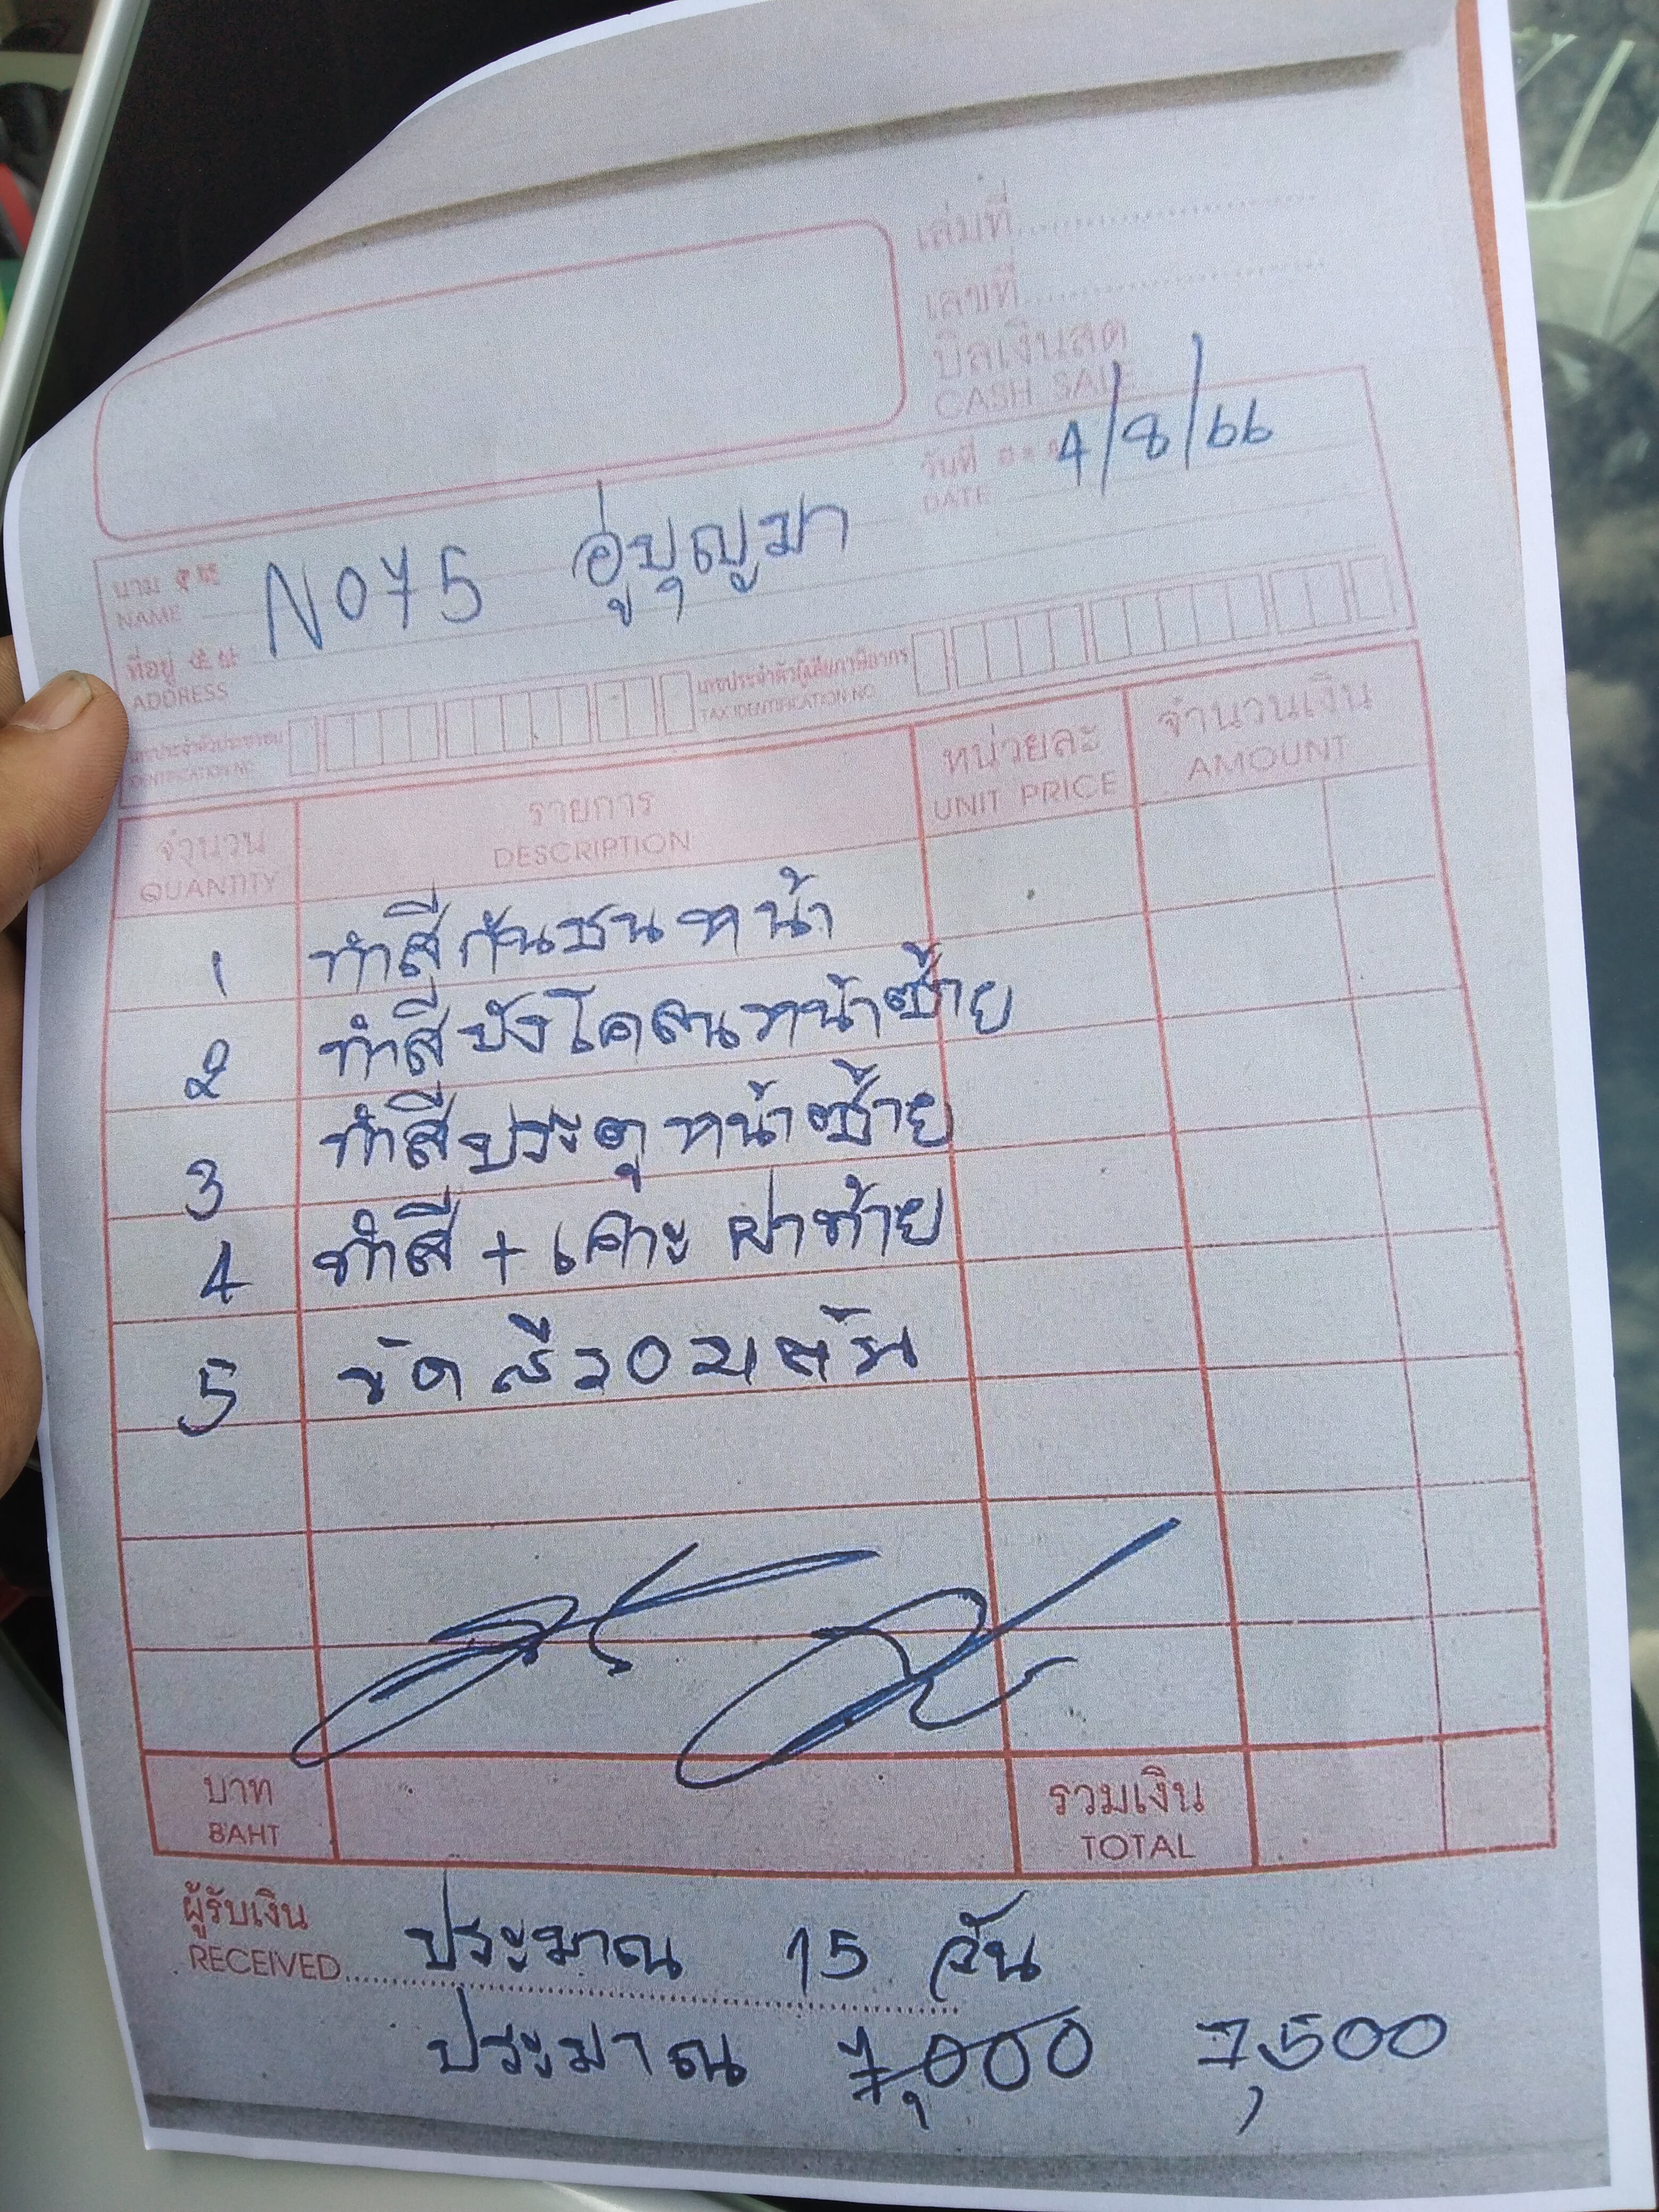 เล่มที่
เลขที่
บิลเงินสด
CASH SALE
วันที่ 4/8/66
DATE
นาม NO75 อู่บุญมา
NAME
ที่อยู่
ADDRESS
เลขประจำตัวประชาชน เลขประจำตัวผู้เสียภาษีอากร
IDENTIFICATION NO. TAX IDENTIFICATION NO.
จำนวน รายการ หน่วยละ จำนวนเงิน
QUANTITY DESCRIPTION UNIT PRICE AMOUNT
1 ทำสีกันชนหน้า
2 ทำสีบังโคลนหน้าซ้าย
3 ทำสีประตูหน้าซ้าย
4 ทำสี + เคาะ ฝาท้าย
5 ขัดสีรอบคัน
บาท รวมเงิน
BAHT TOTAL
ผู้รับเงิน
RECEIVED ประมาณ 15 วัน
ประมาณ 7,000 7,500